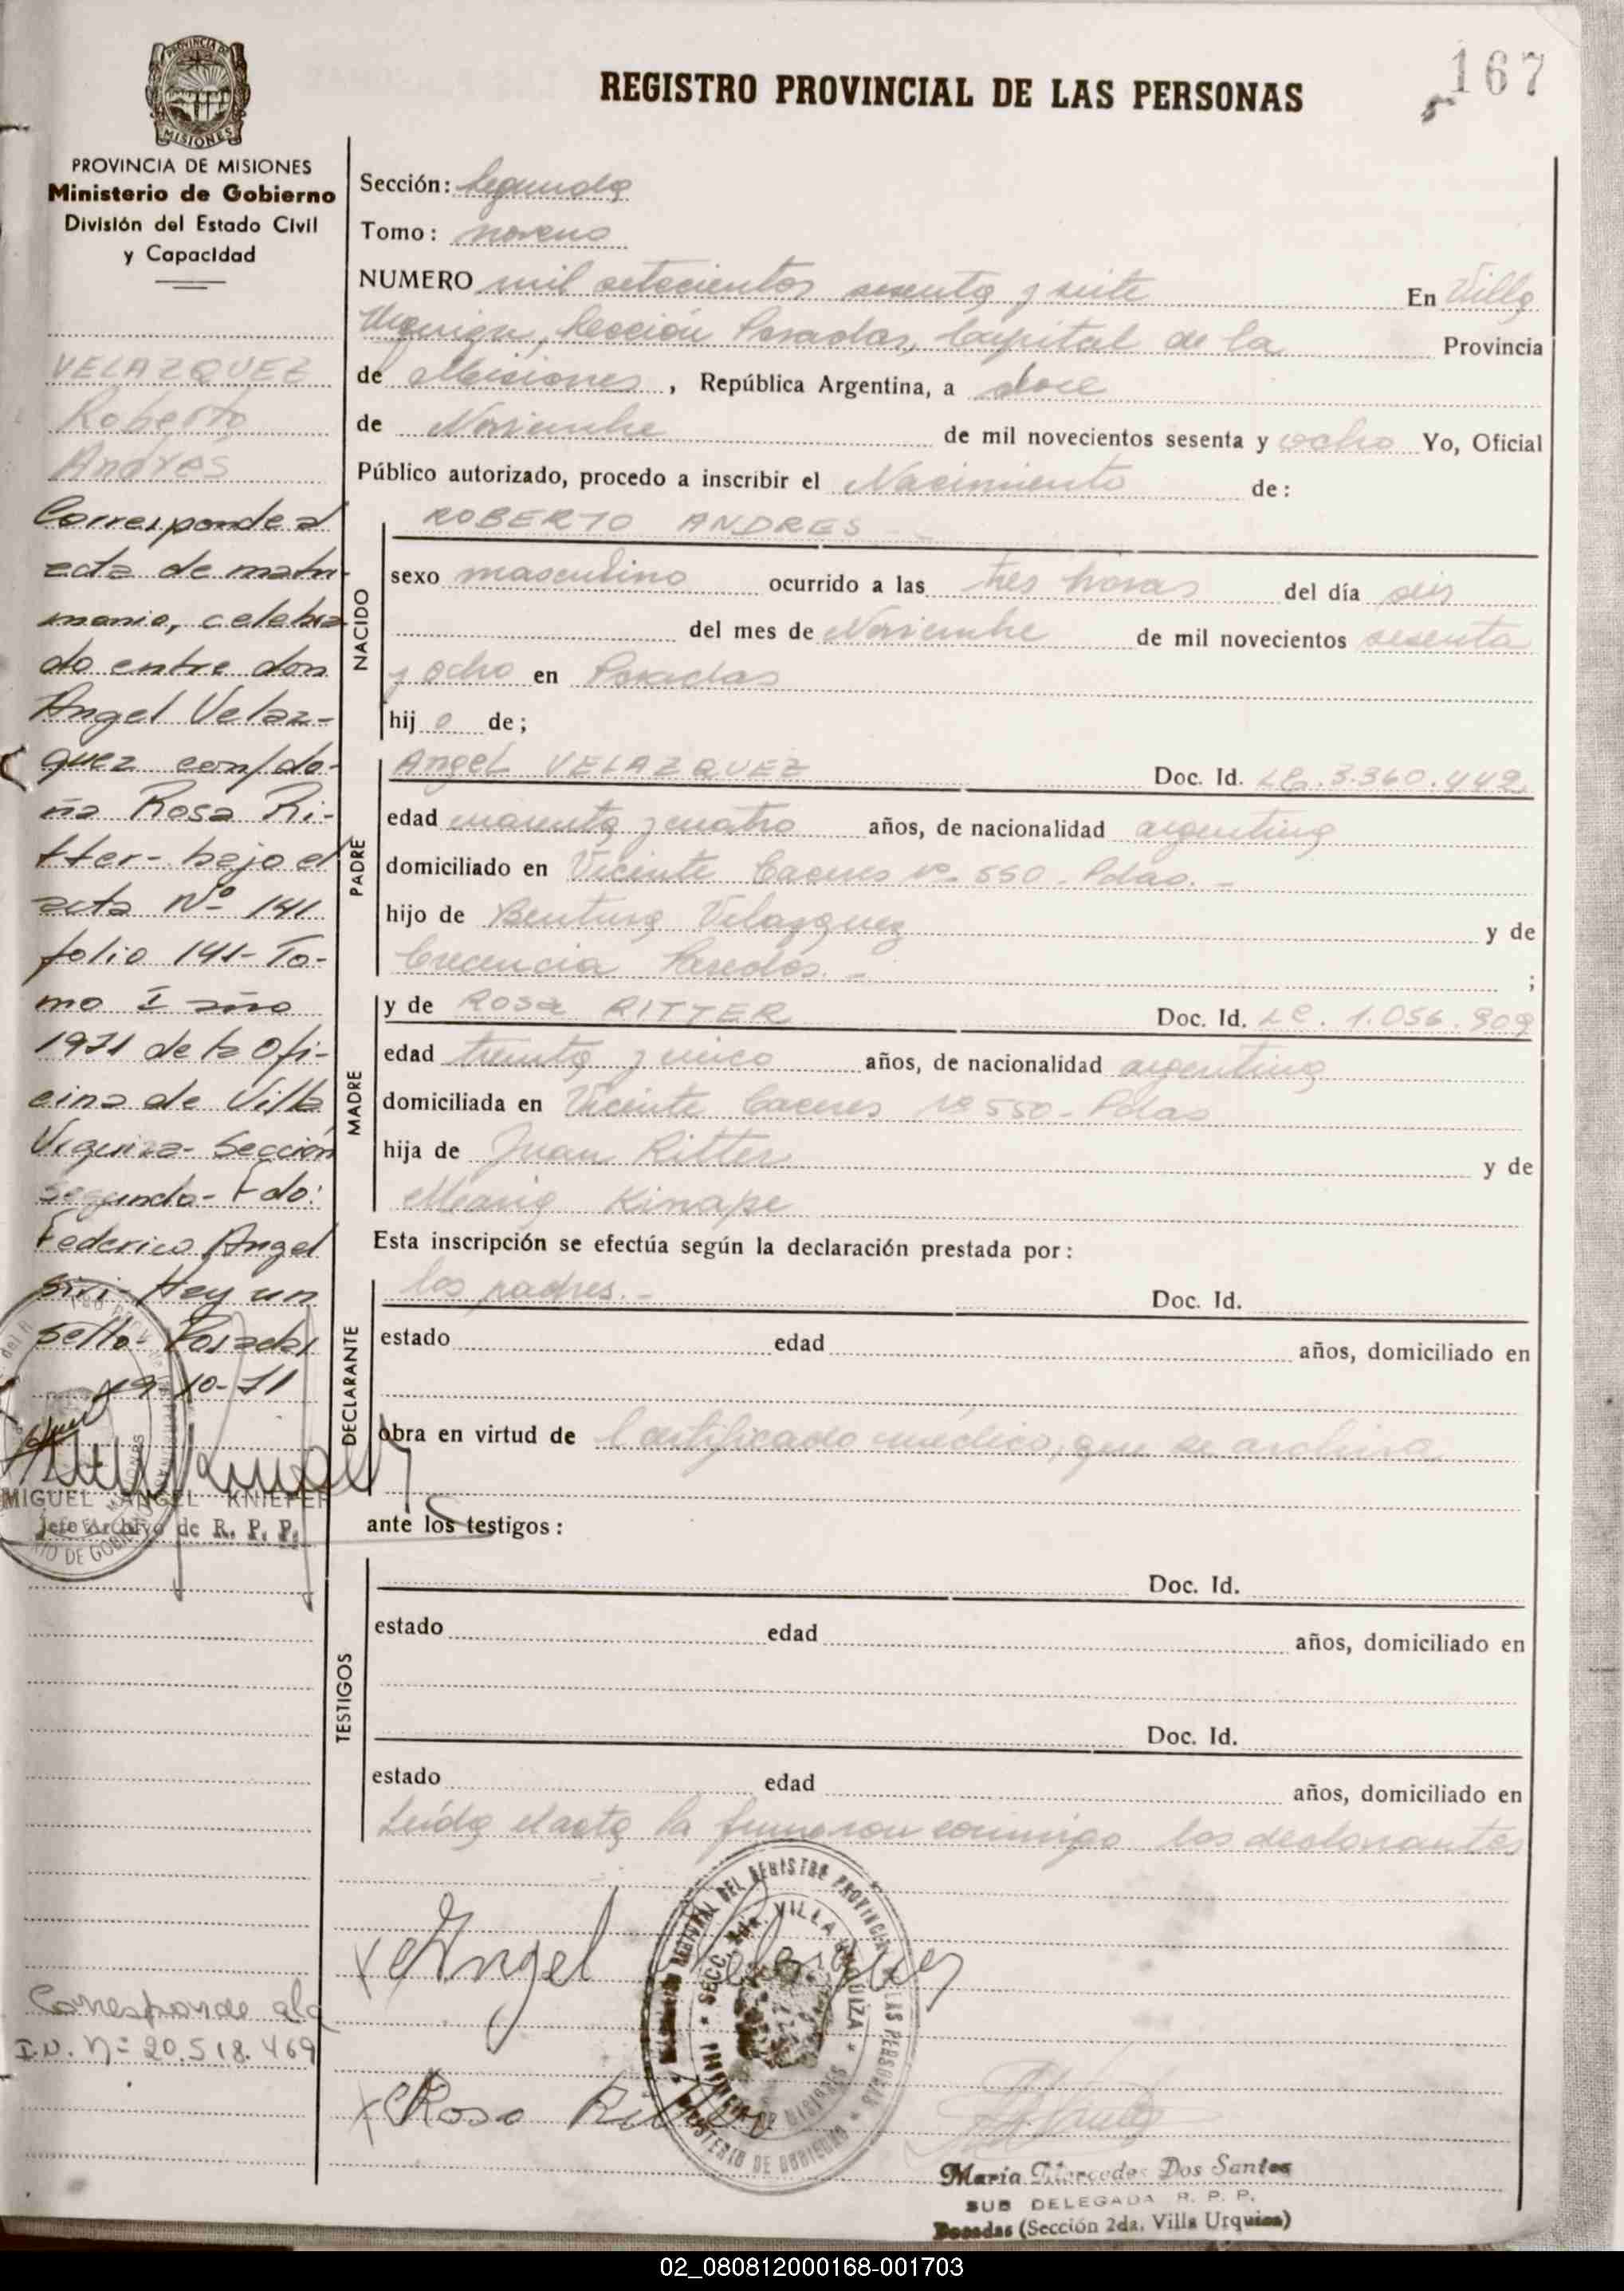 167
REGISTRO PROVINCIAL DE LAS PERSONAS
PROVINCIA DE MISIONES
MISIONES
PROVINCIA DE MISIONES
Ministerio de Gobierno
División del Estado Civil
y Capacidad
VELAZQUEZ
Roberto
Andrés
Corresponde al
acta de matri-
monio, celebra
do entre don
Angel Velaz-
quez con/do-
ña Rosa Ri-
tter- bajo el
acta Nº 141
folio 141- To-
mo I año
1971 de la Ofi-
cina de Villa
Urquiza- Sección
Segunda- Fdo:
Federico Angel
Hay un
sello- Posadas
19-10-71
MIGUEL ANGEL KNIEFER
Jefe Archivo de R. P. P.
Corresponde al
N= 20.518.469
Sección: Segunda
Tomo: noveno
NUMERO mil setecientos sesenta y siete En Villa
Urquiza, Sección Posadas, Capital de la Provincia
de Misiones, República Argentina, a doce
de Noviembre de mil novecientos sesenta y ocho Yo, Oficial
Público autorizado, procedo a inscribir el Nacimiento de:
NACIDO
ROBERTO ANDRES
sexo masculino ocurrido a las tres horas del día seis
del mes de Noviembre de mil novecientos sesenta
y ocho en Posadas
hij o de;
PADRE
Angel VELAZQUEZ Doc. Id. LE. 3.360.442
edad cuarenta y cuatro años, de nacionalidad argentina
domiciliado en Vicente Caceres Nº 550 - Pdas. -
hijo de Bentura Velazquez y de
Crecencia Paredes. - ;
MADRE
y de Rosa RITTER Doc. Id. LC. 1.056.909
edad treinta y cinco años, de nacionalidad argentina
domiciliada en Vicente Caceres Nº 550 - Pdas
hija de Juan Ritter y de
Maria Kinape
Esta inscripción se efectúa según la declaración prestada por:
DECLARANTE
los padres. - Doc. Id.
estado edad años, domiciliado en
obra en virtud de Certificado médico, que se archiva
ante los testigos:
TESTIGOS
Doc. Id.
estado edad años, domiciliado en
Doc. Id.
estado edad años, domiciliado en
Leída el acta la firmaron conmigo los declarantes
x Angel Velasquez
x Rosa Ritter
REGISTRO PROVINCIAL DE LAS PERSONAS
SECC. 2da. VILLA URQUIZA
MINISTERIO DE GOBIERNO
María Mercedes Dos Santos
SUB DELEGADA R. P. P.
Posadas (Sección 2da. Villa Urquiza)
02_080812000168-001703